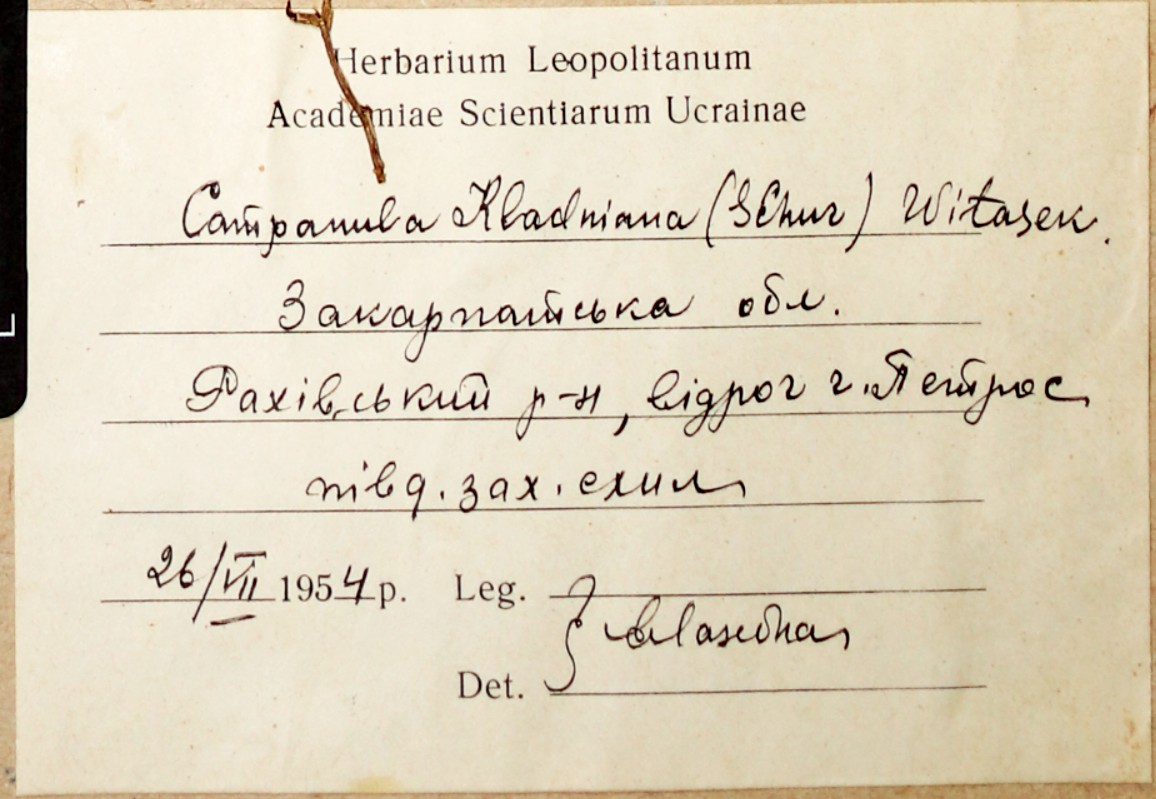 Herbarium Leopolitanum
Academiae Scientiarum Ucrainae
Campanula Kladniana (Schur) Witasek.
Закарпатська обл.
Рахівський р-н, відрог г. Петрос
півд. зах. схил
26/VII 1954 р. Leg.
Det.